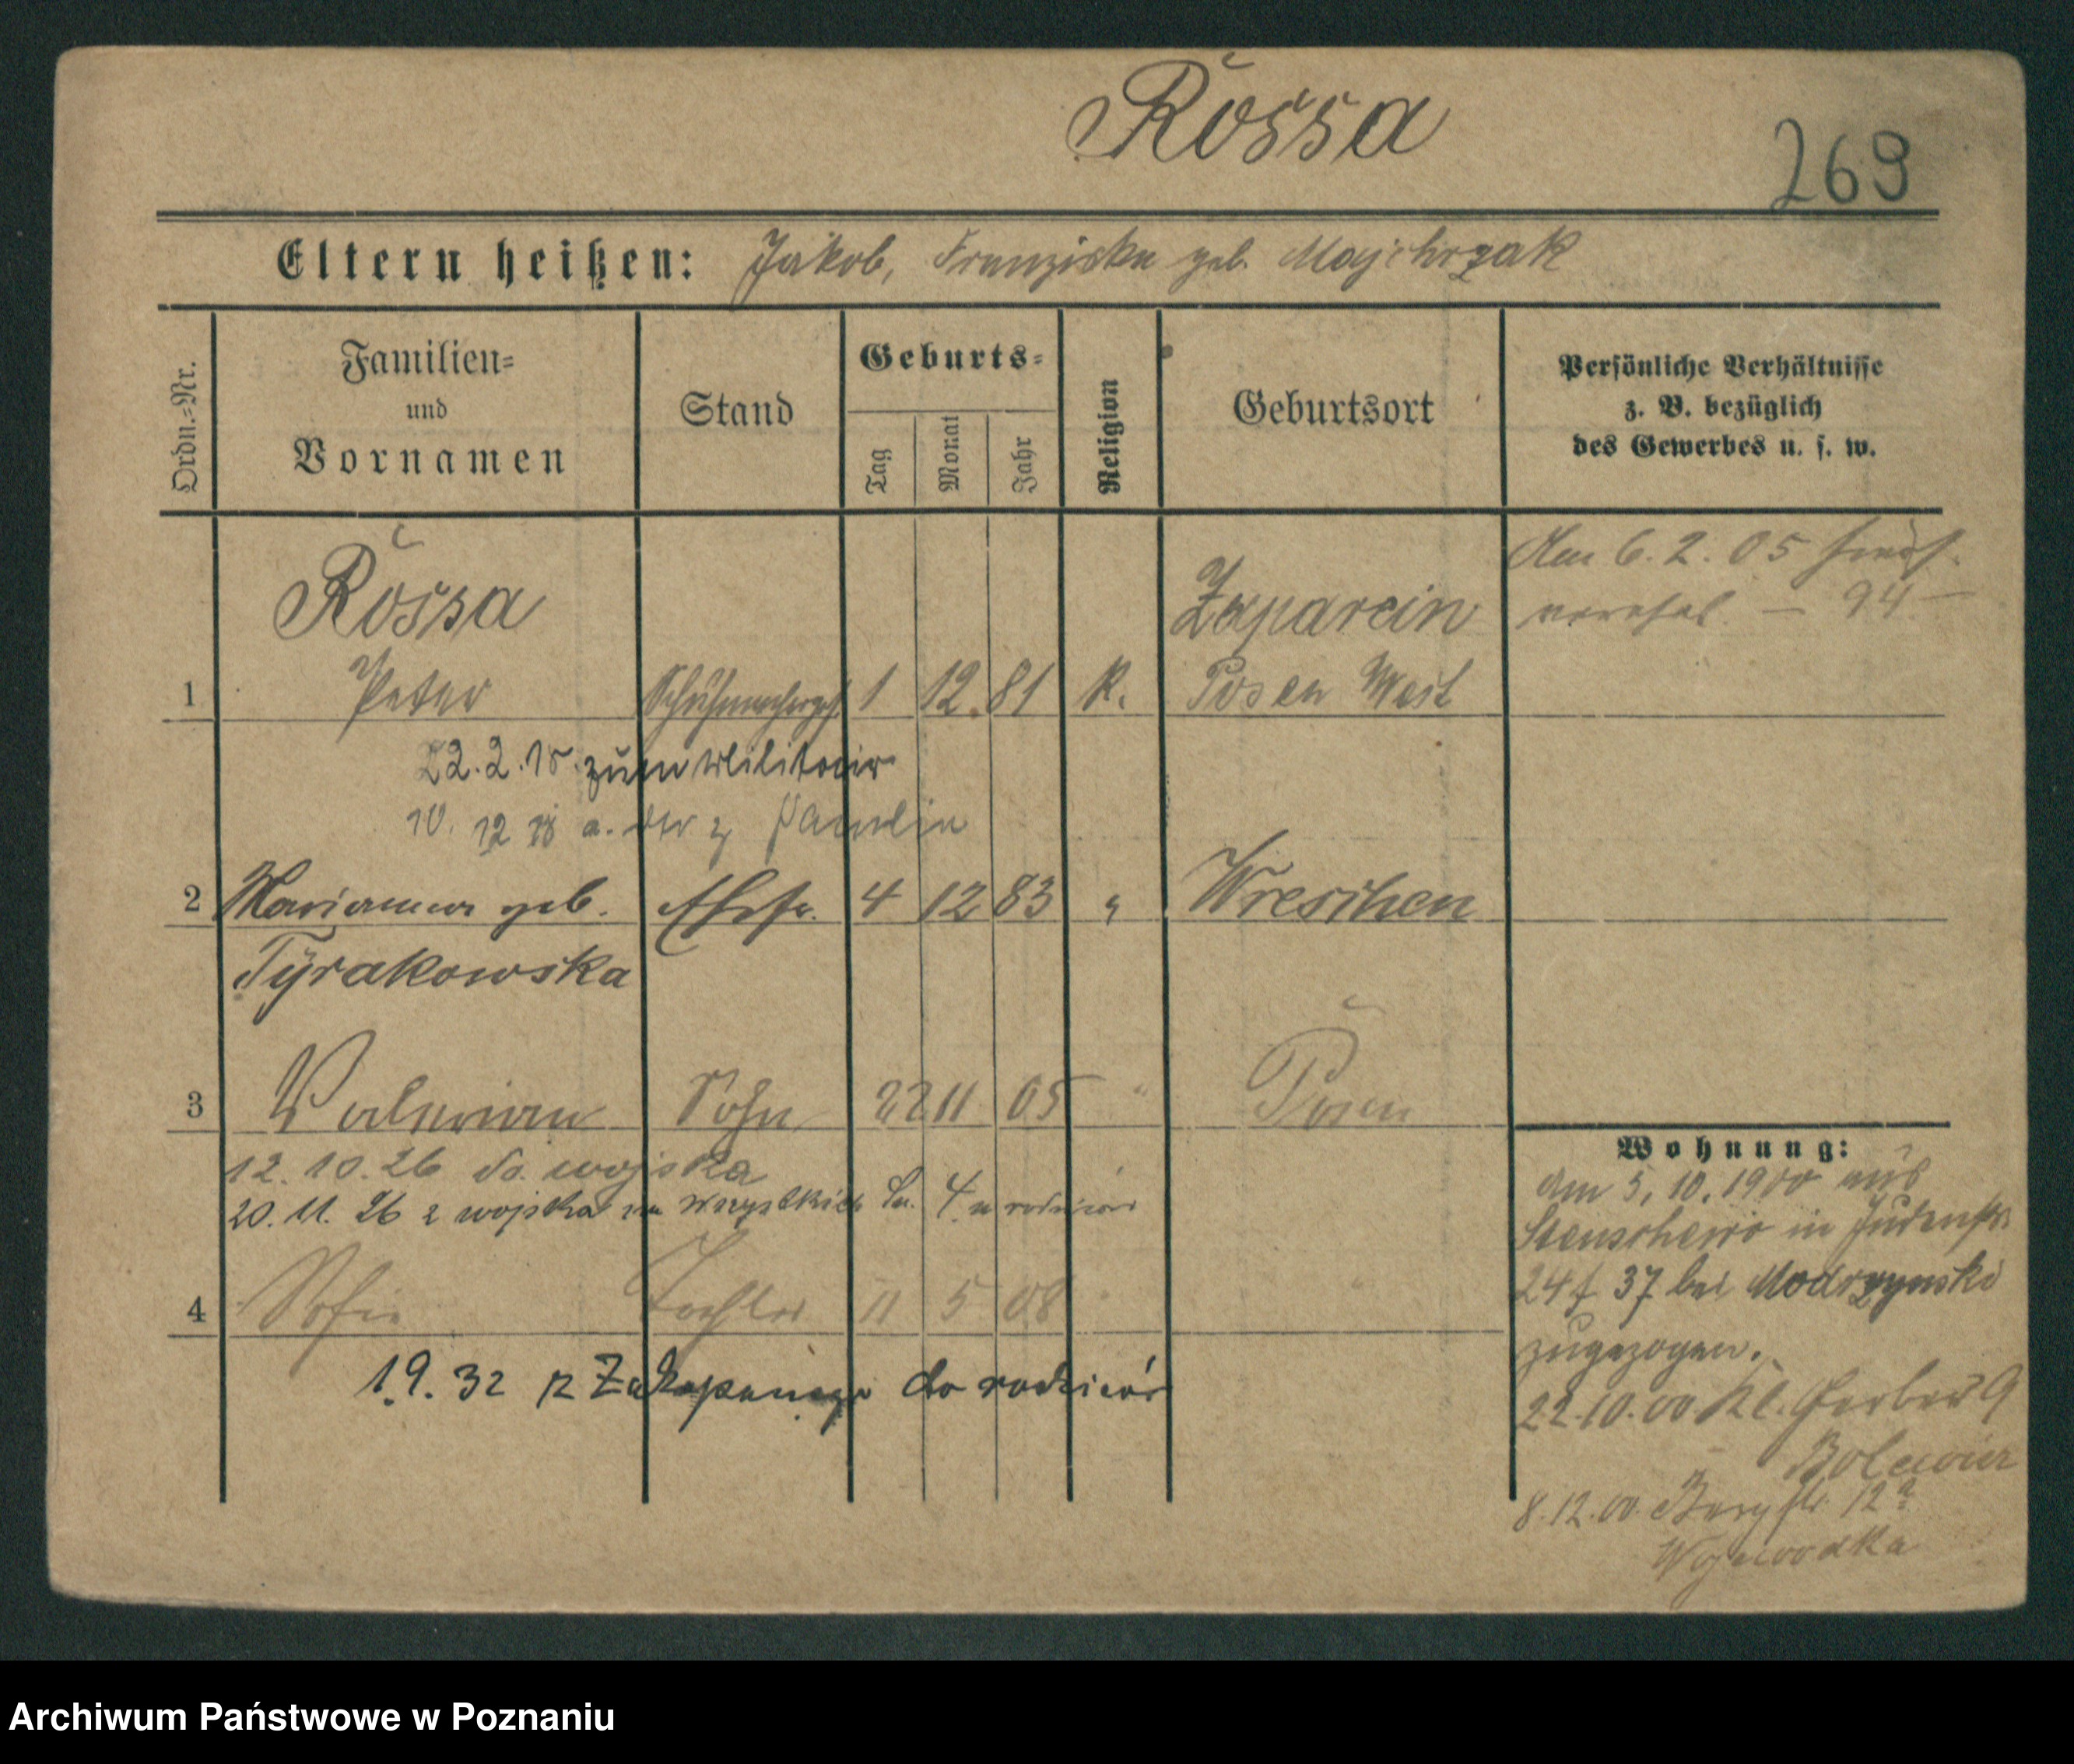 Rossa
269
Eltern heißen: Jakob, Franziska geb. Majchrzak
Ordn.=Nr.
Familien=
und
Vornamen
Stand
Geburts=
Tag
Monat
Jahr
Religion
Geburtsort
Persönliche Verhältnisse
z. B. bezüglich
des Gewerbes u. s. w.
Rossa
Zaparcin
Am 6. 2. 05
verehel. — 94 —
1 Peter Schuhmacherges. 1 12. 81 K. Posen West
22. 2. 15 zum Militair
10. 12 18 a. der z Familie
2 Marianna geb. Ehefr. 4 12 83 " Wreschen
Tyrakowska
3 Valerian Sohn 22 11 05 " Posen
12. 10. 26 do wojska
20. 11. 26 z wojska na Wszystkich Św. 4 u rodziców
4 Sofie Tochter 11 5 08 "
1.9. 32 z Zakopanego do rodziców
Wohnung:
Am 5. 10. 1900 aus
Stenschewo in Judenstr.
24/ 37 bei Modrzynski
zugezogen.
22.10.00 Kl. Gerberst 9
8.12.00. Bergstr. 12a
Wojewodka
Archiwum Państwowe w Poznaniu